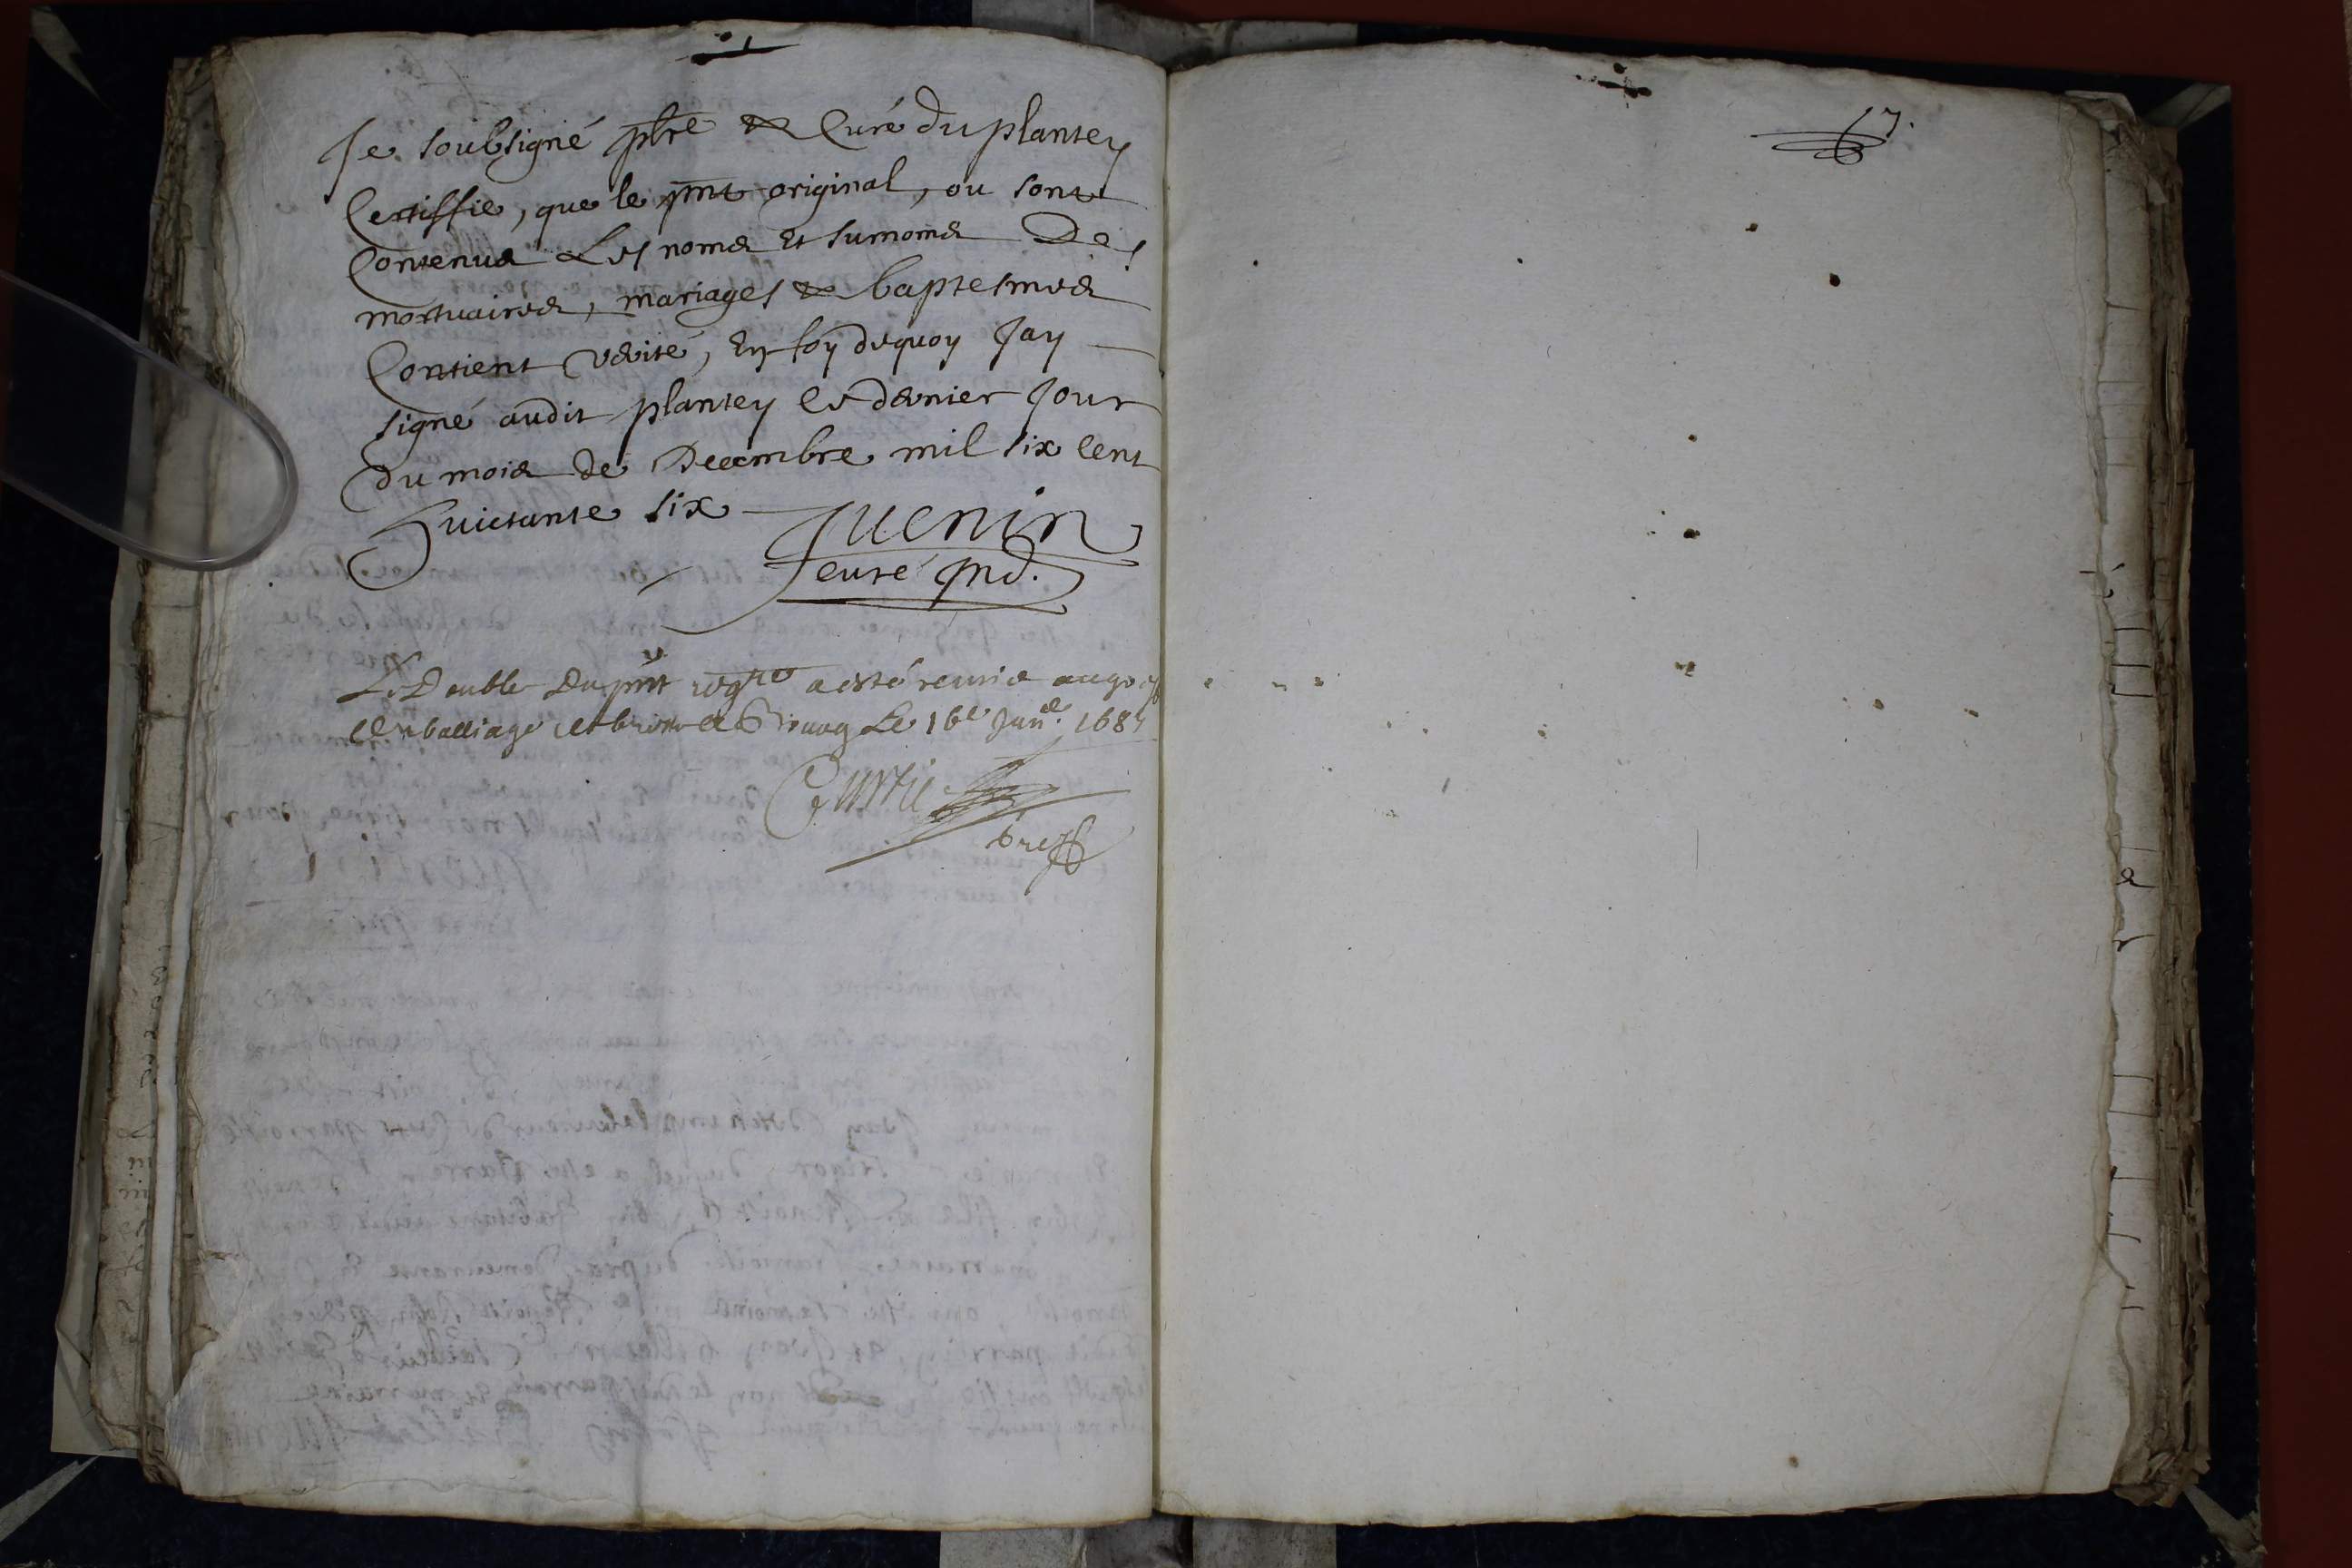 Je soubsigné pbre & Curé du plantey
Certiffie, que le pnt original, ou sont
Contenus Les noms Et surnoms Des
mortuaires, mariages & baptesmes
Contient verité, En foy dequoy Jay
signé audit plantey le dernier Jour
du mois de Decembre mil six cent
huictante six
Juenin
curé
Le Double du pnt regre a esté remis au
balliage de bresse Le 16e Janer 168
bress
17.